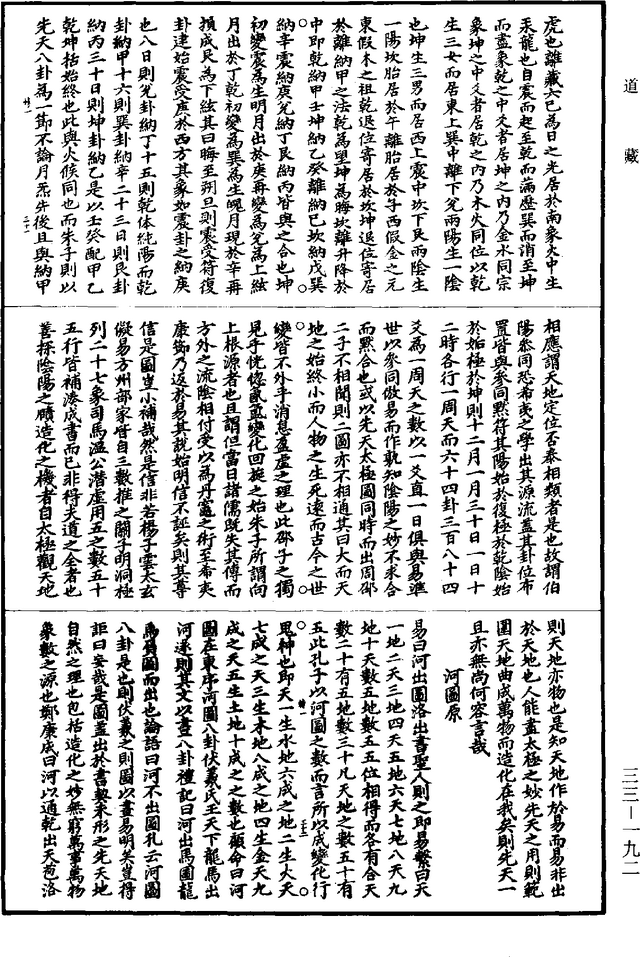 道藏
虎也離藏六己為日之光居於南象火中生
汞龍也自震而起至乾而滿歷巽而消至坤
而盡象乾之中爻者居坤之內乃金水同宗
象坤之中爻者居乾之內乃木火同位以乾
生三女而居東上巽中離下兌兩陽生一陰
也坤生三男而居西上震中坎下艮兩陰生
一陽坎胎居於午離胎居於子西假金之元
東假木之祖乾退位寄居於坎坤退位寄居
於離納甲之法乾為望坤為晦坎離升降於
中即乾納甲壬坤納乙癸離納己坎納戊巽
納辛震納庚兌納丁艮納丙皆與之合也坤
初變震為生明月出於庚再變為兌為上絃
月出於丁乾初變為巽為生魄月現於辛再
損成艮為下絃其曰晦至朔旦則震受符復
卦建始震受庚於西方其象如震卦之納庚
也八日則兌卦納丁十五則乾體純陽而乾
卦納甲十六則巽卦納辛二十三日則艮卦
納丙三十日則坤卦納乙是以壬癸配甲乙
乾坤括始終也此與火候同也而朱子則以
先天八卦為一節不論月炁先後且與納甲
相應謂天地定位否泰相類者是也故謂伯
陽參同恐希夷之學出其源流蓋其卦位布
置皆與參同默符其陽始於復極於乾陰始
於姤極於坤則十二月一月三十日一日十
二時各行一周天而六十四卦三百八十四
爻為一周天之數以一爻直一日俱與易準
世以參同倣易而作孰知陰陽之妙不求合
而默合也或以先天太極圖同時而出周邵
二子不相聞則二圖亦不相通其曰大而天
地之始終小而人物之生死遠而古今之世
變皆不外乎消息盈虛之理也此邵子之獨
見乎恍惚變化回旋之始朱子所謂向
上根源者也且謂但當日諸儒既失其傳而
方外之流陰相付受以為丹竈之術至希夷
康節乃返於易其說始明信不誣矣則其尊
信是圖豈小補哉然是信非若楊子雲太玄
儗易方州部家皆自三數推之關子明洞極
列二十七象司馬溫公潛虛用五之數五十
五行皆補湊成書而已非得夫道之全者也
善探陰陽之賾造化之機者自太極觀天地
則天地亦物也是知天地作於易而易非出
於天地也人能盡太極之妙先天之用則範
圍天地曲成萬物而造化在我矣則先天一
且亦無尚何容言哉
河圖原
易曰河出圖洛出書聖人則之即易繫曰天
一地二天三地四天五地六天七地八天九
地十天數五地數五五位相得而各有合天
數二十有五地數三十凡天地之數五十有
五此孔子以河圖之數而言所以成變化行
鬼神也即天一生水地六成之地二生火天
七成之天三生木地八成之地四生金天九
成之天五生土地十成之之數也顧命曰河
圖在東序河圖八卦伏羲氏王天下龍馬出
河遂則其文以畫八卦禮記曰河出馬圖龍
馬負圖而出也論語曰河不出圖孔云河圖
八卦是也則伏羲之則圖以畫易明矣豈得
詎曰妄哉是圖蓋出於書契未形之先天地
自然之理也包括造化之妙無窮萬事萬物
象數之源也鄭康成曰河以通乾出天苞洛
三三—一九二